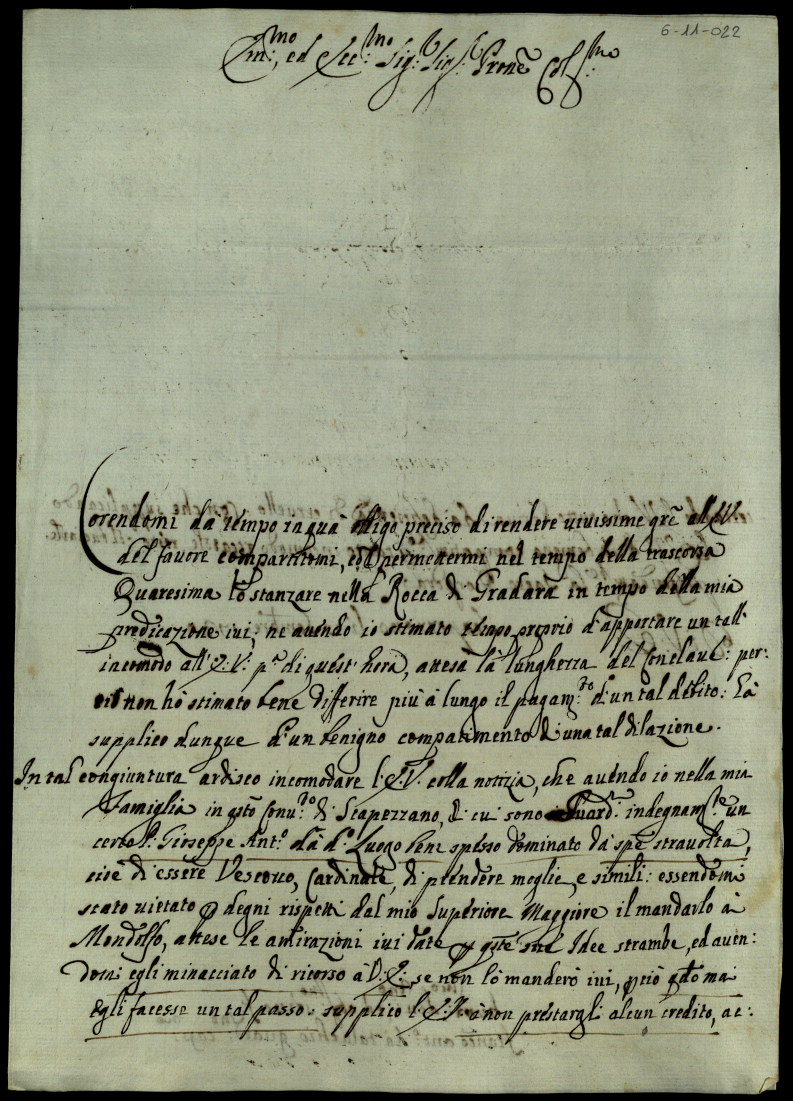 6-11-022
Ill:mo, ed Ecc:mo Sig:r Sig:r Prone Col:mo
Corendomi da tempo in quà obligo preciso di rendere vivissime gre all'E.V.
del favore compartitomi, col permettermi nel tempo della trascorsa
Quaresima lo stanzare nella Rocca di Gradara in tempo della mia
predicazione ivi; ne avendo io stimato tempo proprio d'apportare un tall'
incomodo all'E.V. p:a di quest'hora, attesa la lunghezza del Conclave: per:
ciò non hò stimato bene differire più à lungo il pagam:to d'un tal debito: Là
supplico dunque d'un benigno compatimento d'una tal dilazione.
In tal congiuntura ardisco incomodare l'E.V. colla notizia, che avendo io nella mia
Famiglia in qsto Conv:to di Scapezzano, di cui sono Guard:o indegnam:te un
certo P. Gioseppe Ant:o dà d:o Luogo bene spesso dominato dà spe stravolta,
cioè di essere Vescovo, Cardinale, di prendere moglie, e simili: essendomi
stato vietato p degni rispetti dal mio Superiore Maggiore il mandarlo à
Mondolfo, attese le amirazioni ivi date p qste sue Idee strambe, ed aven:
domi egli minacciato di ricorso à V.E. se non lò manderò ivi, pciò qdo mai
Egli facesse un tal passo: supplico l'E.V. à non prestargli alcun credito, ac: